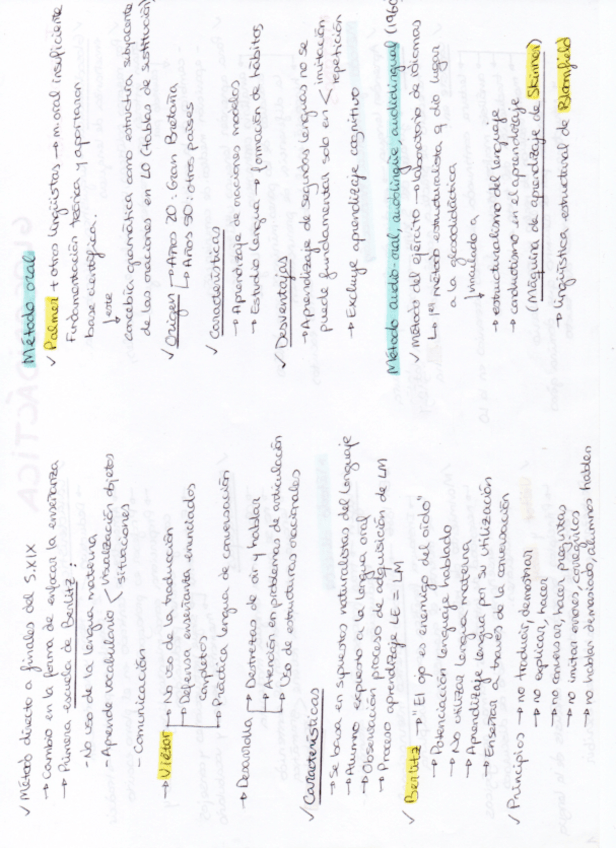 ✓ Método directo a finales del S.XIX
→ Cambio en la forma de enfocar la enseñanza
→ Primera escuela de Berlitz:
- No uso de la lengua materna
- Aprende vocabulario < visualización objetos
situaciones
- Comunicación
→ Viëtor → No uso de la traducción
→ Defensa enseñanza enunciados
completos
→ Práctica lengua de conversación
→ Desarrolla → Destrezas de oír y hablar
→ Atención en problemas de articulación
→ Uso de estructuras oracionales
✓ Características
→ Se basa en supuestos naturalistas del lenguaje
→ Alumno expuesto a la lengua oral
→ Observación proceso de adquisición de LM
→ Proceso aprendizaje LE = LM
✓ Berlitz → "El ojo es enemigo del oído"
→ Potenciación lenguaje hablado
→ No utilizar lengua materna
→ Aprendizaje lengua por su utilización
→ Enseñar a través de la conversación
✓ Principios → no traducir, demostrar
→ no explicar, hacer
→ no conversar, hacer preguntas
→ no imitar errores, corregirlos
→ no hablar demasiado, alumnos hablen
Método oral
✓ Palmer + otros lingüistas → m. oral insuficiente
Fundamentación teórica y aportaron
base científica.
↓ cree
Concebía gramática como estructura subyacente
de las oraciones en LO (tablas de sustitución)
✓ Origen → Años 20: Gran Bretaña
↳ Años 50: otros países
✓ Características
→ Aprendizaje de oraciones modelos
→ Estudio lengua → formación de hábitos
✓ Desventajas
→ Aprendizaje de segundas lenguas no se
puede fundamentar solo en < imitación
repetición
→ Excluye aprendizaje cognitivo
Método audio-oral, audiolingüe, audiolingual (1960)
✓ Método del ejército → laboratorio de idiomas
↳ 1er método estructuralista q dio lugar
a la glosodidáctica
↓ vinculado a
→ estructuralismo del lenguaje
→ conductismo en el aprendizaje
(Máquina de aprendizaje de Skinner)
→ lingüística estructural de Bloomfield